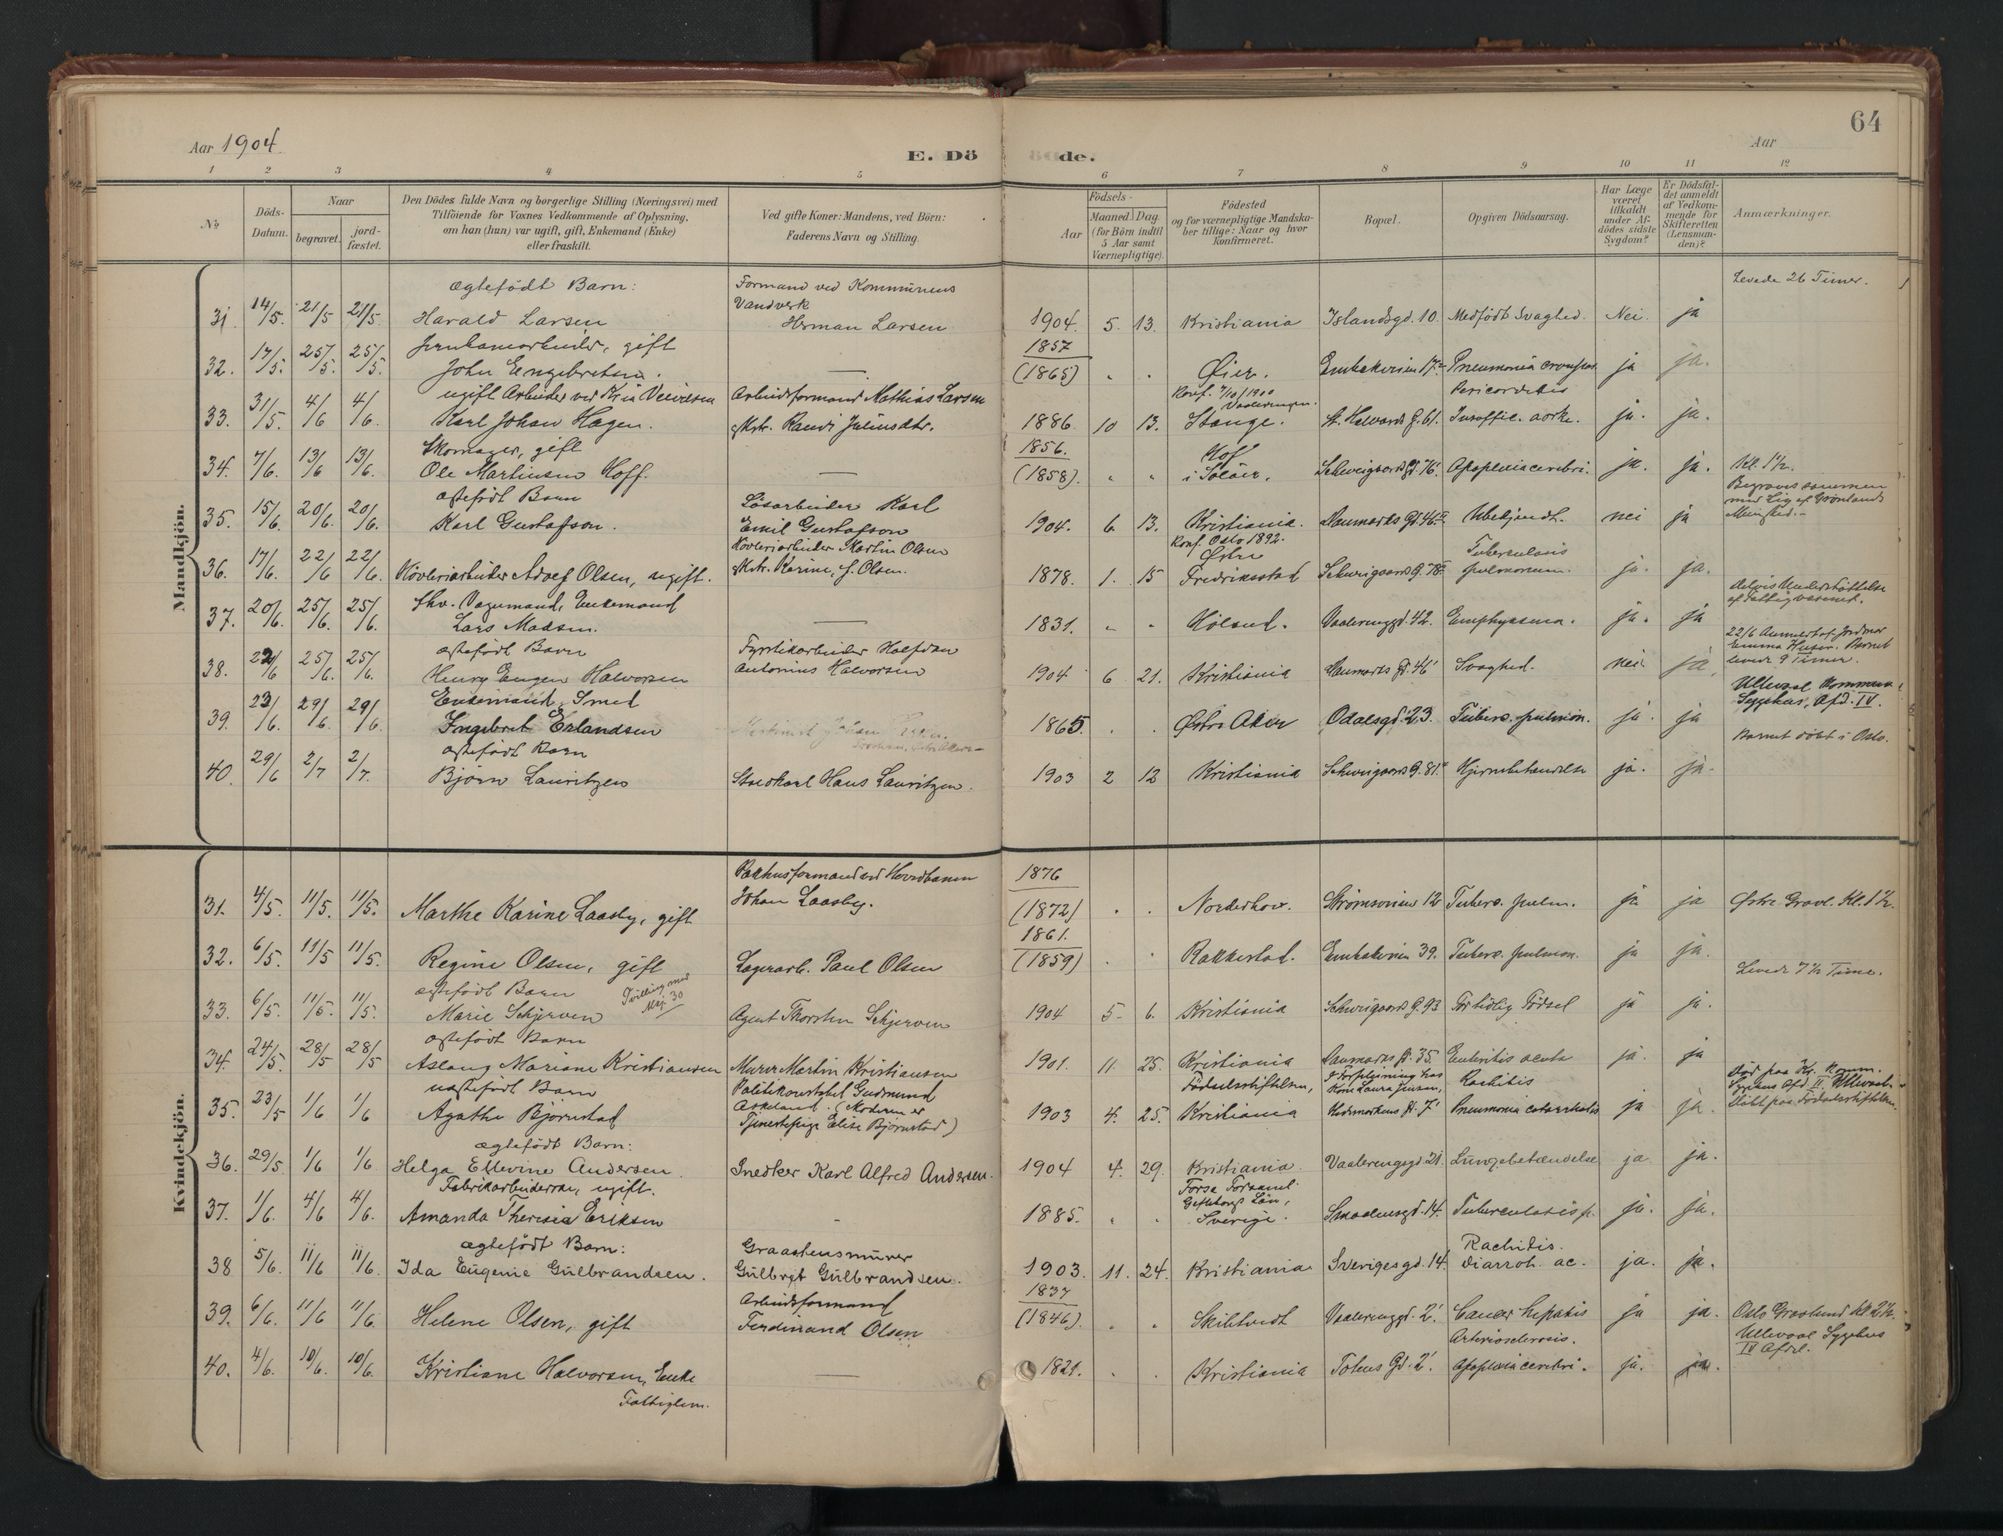 Aar 1904.
E. Döde.
Aar
64
1 2 3 4 5 6 7 8 9 10 11 12
№
Döds-Datum.
Naar
begravet.
jord-fæstet.
Den Dödes fulde Navn og borgerlige Stilling (Næringsvei) med
Tilföiende for Voxnes Vedkommende af Oplysning,
om han (hun) var ugift, gift, Enkemand (Enke)
eller fraskilt.
Ved gifte Koner: Mandens, ved Börn:
Faderens Navn og Stilling.
Födsels-
Aar
Maaned Dag
(for Börn indtil
5 Aar samt
Værnepligtige).
Födested
og for værnepligtige Mandska-
ber tillige: Naar og hvor
konfirmeret.
Bopæl.
Opgiven Dödsaarsag.
Har Læge
været
tilkaldt
under Af-
dödes sidste
Sygdom?
Er Dödsfal-
det anmeldt
af Vedkom-
mende for
Skifteretten
(Lensman-
den)?
Anmærkninger.
Mandkjön.
ægtefödt Barn: Formand ved Kommunens Vandverk Levede 26 Timer.
31. 14/5. 21/5 21/5. Harald Larsen Herman Larsen 1904. 5. 13. Kristiania Islandsgd. 10. Medfödt Svaghed. Nei. ja
gift 1857
32. 17/5. 25/5. 25/5. John Engebretsen. — (1865) " " Øier. Enebakveien 17 Pneumonia crouposa ja ja.
ugift Arbeider ved Arbeidsformand Mathias Larsen Konf. 7/10 1900 Vaalerengen. Pericarditis
33. 31/5. 4/6 4/6. Karl Johan Hagen. Mstr. Randi Juliusdtr. 1886 10 13. Stange. St. Halvards G. 61. Insuffic. aorte. ja. ja.
Skomager, gift 1856. Hof
34. 7/6. 13/6 13/6. Ole Martinsen Hoff. — (1858). " " i Solör. Schweigaards G. 76. Apoplexia cerebri. ja. ja. Kl. 1½.
ægtefödt Barn Lösarbeider Karl Begraves sammen med Lig af Grönlands Menighed.
35. 15/6. 20/6 20/6. Karl Gustafson. Emil Gustafson 1904. 6. 13. Kristiania. Danmarks Gd. 46 Ubekjendt. nei ja
Hövleriarbeider Martin Olsen Konf. Oslo 1892. Østre Tuberculosis
36. 17/6. 22/6 22/6. Hövleriarbeider Adolf Olsen, ugift. Mstr. Karine, f. Olsen. 1878. 1. 15 Fredriksstad Schweigaards G. 78 pulmonum. ja. ja.
fhv. Vognmand, Enkemand delvis Understöttelse af Fattigvæsenet.
37. 20/6. 25/6. 25/6. Lars Madsen. — 1831. " " Höland. Vaalerenggd. 42. Emphysema. ja. ja
ægtefödt Barn Fyrstikarbeider Halfdan 22/6 Anmeldt af Jordmor Emma Huser. Barnet levede 9 Timer.
38. 22/6 25/6. 25/6. Henry Eugen Halvorsen Antonius Halvorsen 1904 6 21. Kristiania Danmarks Gd. 46 Svaghed. nei ja,
Enkemand, Smed Ullevaal Kommunes Sygehus, Afd. IV.
39. 23/6. 29/6. 29/6. Ingebret Erlandsen 1865. " " Østre Aker Odalsgd. 23. Tuberc. pulmon. ja. ja
ægtefödt Barn Barnet döbt i Oslo.
40. 29/6 2/7 2/7. Björn Lauritzen Stadkarl Hans Lauritzen. 1903 2 12 Kristiania Schweigaards G. 81 Hjernebetændelse ja. ja.
Kvindekjön.
Pakhusformand ved Hovedbanen 1876
31. 4/5. 11/5. 11/5. Marthe Karine Laasby, gift Johan Laasby. (1872) " " Norderhov. Strömsveien 12 Tuberc. pulm. ja ja Østre Gravl. Kl. 1½.
1861.
32. 6/5. 11/5 11/5. Regine Olsen, gift Lagerarb. Paul Olsen (1859) " " Rakkestad. Enebakveien 39. Tuberc. pulmon. ja ja.
ægtefödt Barn Tvilling med No. 30 Levede 7½ Time.
33. 6/5. 11/5. 11/5. Marie Schjerven Agent Thorsten Schjerven 1904 5 6. Kristiania Schweigaards G. 93 For tidlig Födsel ja ja.
ægtefödt Barn
34. 24/5. 28/5 28/5 Aslaug Mariane Kristiansen Murer Martin Kristiansen 1901. 11. 25. Kristiania Danmarks G. 35. Enteritis acuta ja. ja
uægtefödt Barn Politikonstabel Gudmund Födselsstiftelsen, I Forpleining hos Kone Laura Jensen, Rachitis Död paa Kr. Komm. Sygehus Afd. II. Ullevaal. Döbt paa Födselsstiftelsen.
35. 23/5 1/6 1/6 Agathe Björnstad Askeland. (Moderen er Tjenestepige Elise Björnstad) 1903 4. 25. Kristiania Hedmarkens G. 7 Pneumonia catarrhalis ja ja.
ægtefödt Barn:
36. 29/5 1/6 1/6. Helga Ellevine Andersen. Snedker Karl Alfred Andersen. 1904 4. 29. Kristiania. Vaalerengsgd. 21. Lungebetændelse ja ja.
Fabrikarbeiderske, ugift. Forsa Forsaml. Gefleborgs Län,
37. 1/6. 4/6 4/6. Amanda Theresia Eriksen — 1885. " " Sverige. Smaalensgd. 14. Tuberculosis p. ja. ja.
ægtefödt Barn: Graastensmurer Rachitis.
38 5/6. 11/6 11/6. Ida Eugenie Gulbrandsen. Gulbrgt Gulbrandsen. 1903. 11. 24. Kristiania Sverigesgd. 14. Diarroh. ac. ja. ja.
Arbeidsformand 1837
39. 6/6. 11/6 11/6. Helene Olsen, gift Ferdinand Olsen (1846). " " Skibtvedt Vaalerenggd. 2. Cancer hepatis ja ja. Oslo Gravlund kl 2½.
Arteriosclerosis. Ullevaal Sygehus IV Afdel.
40. 4/6. 10/6. 10/6. Kristiane Halvorsen, Enke — 1821. " " Kristiania Totens Gd. 2. Apoplexia cerebri. ja. ja.
Fattiglem.